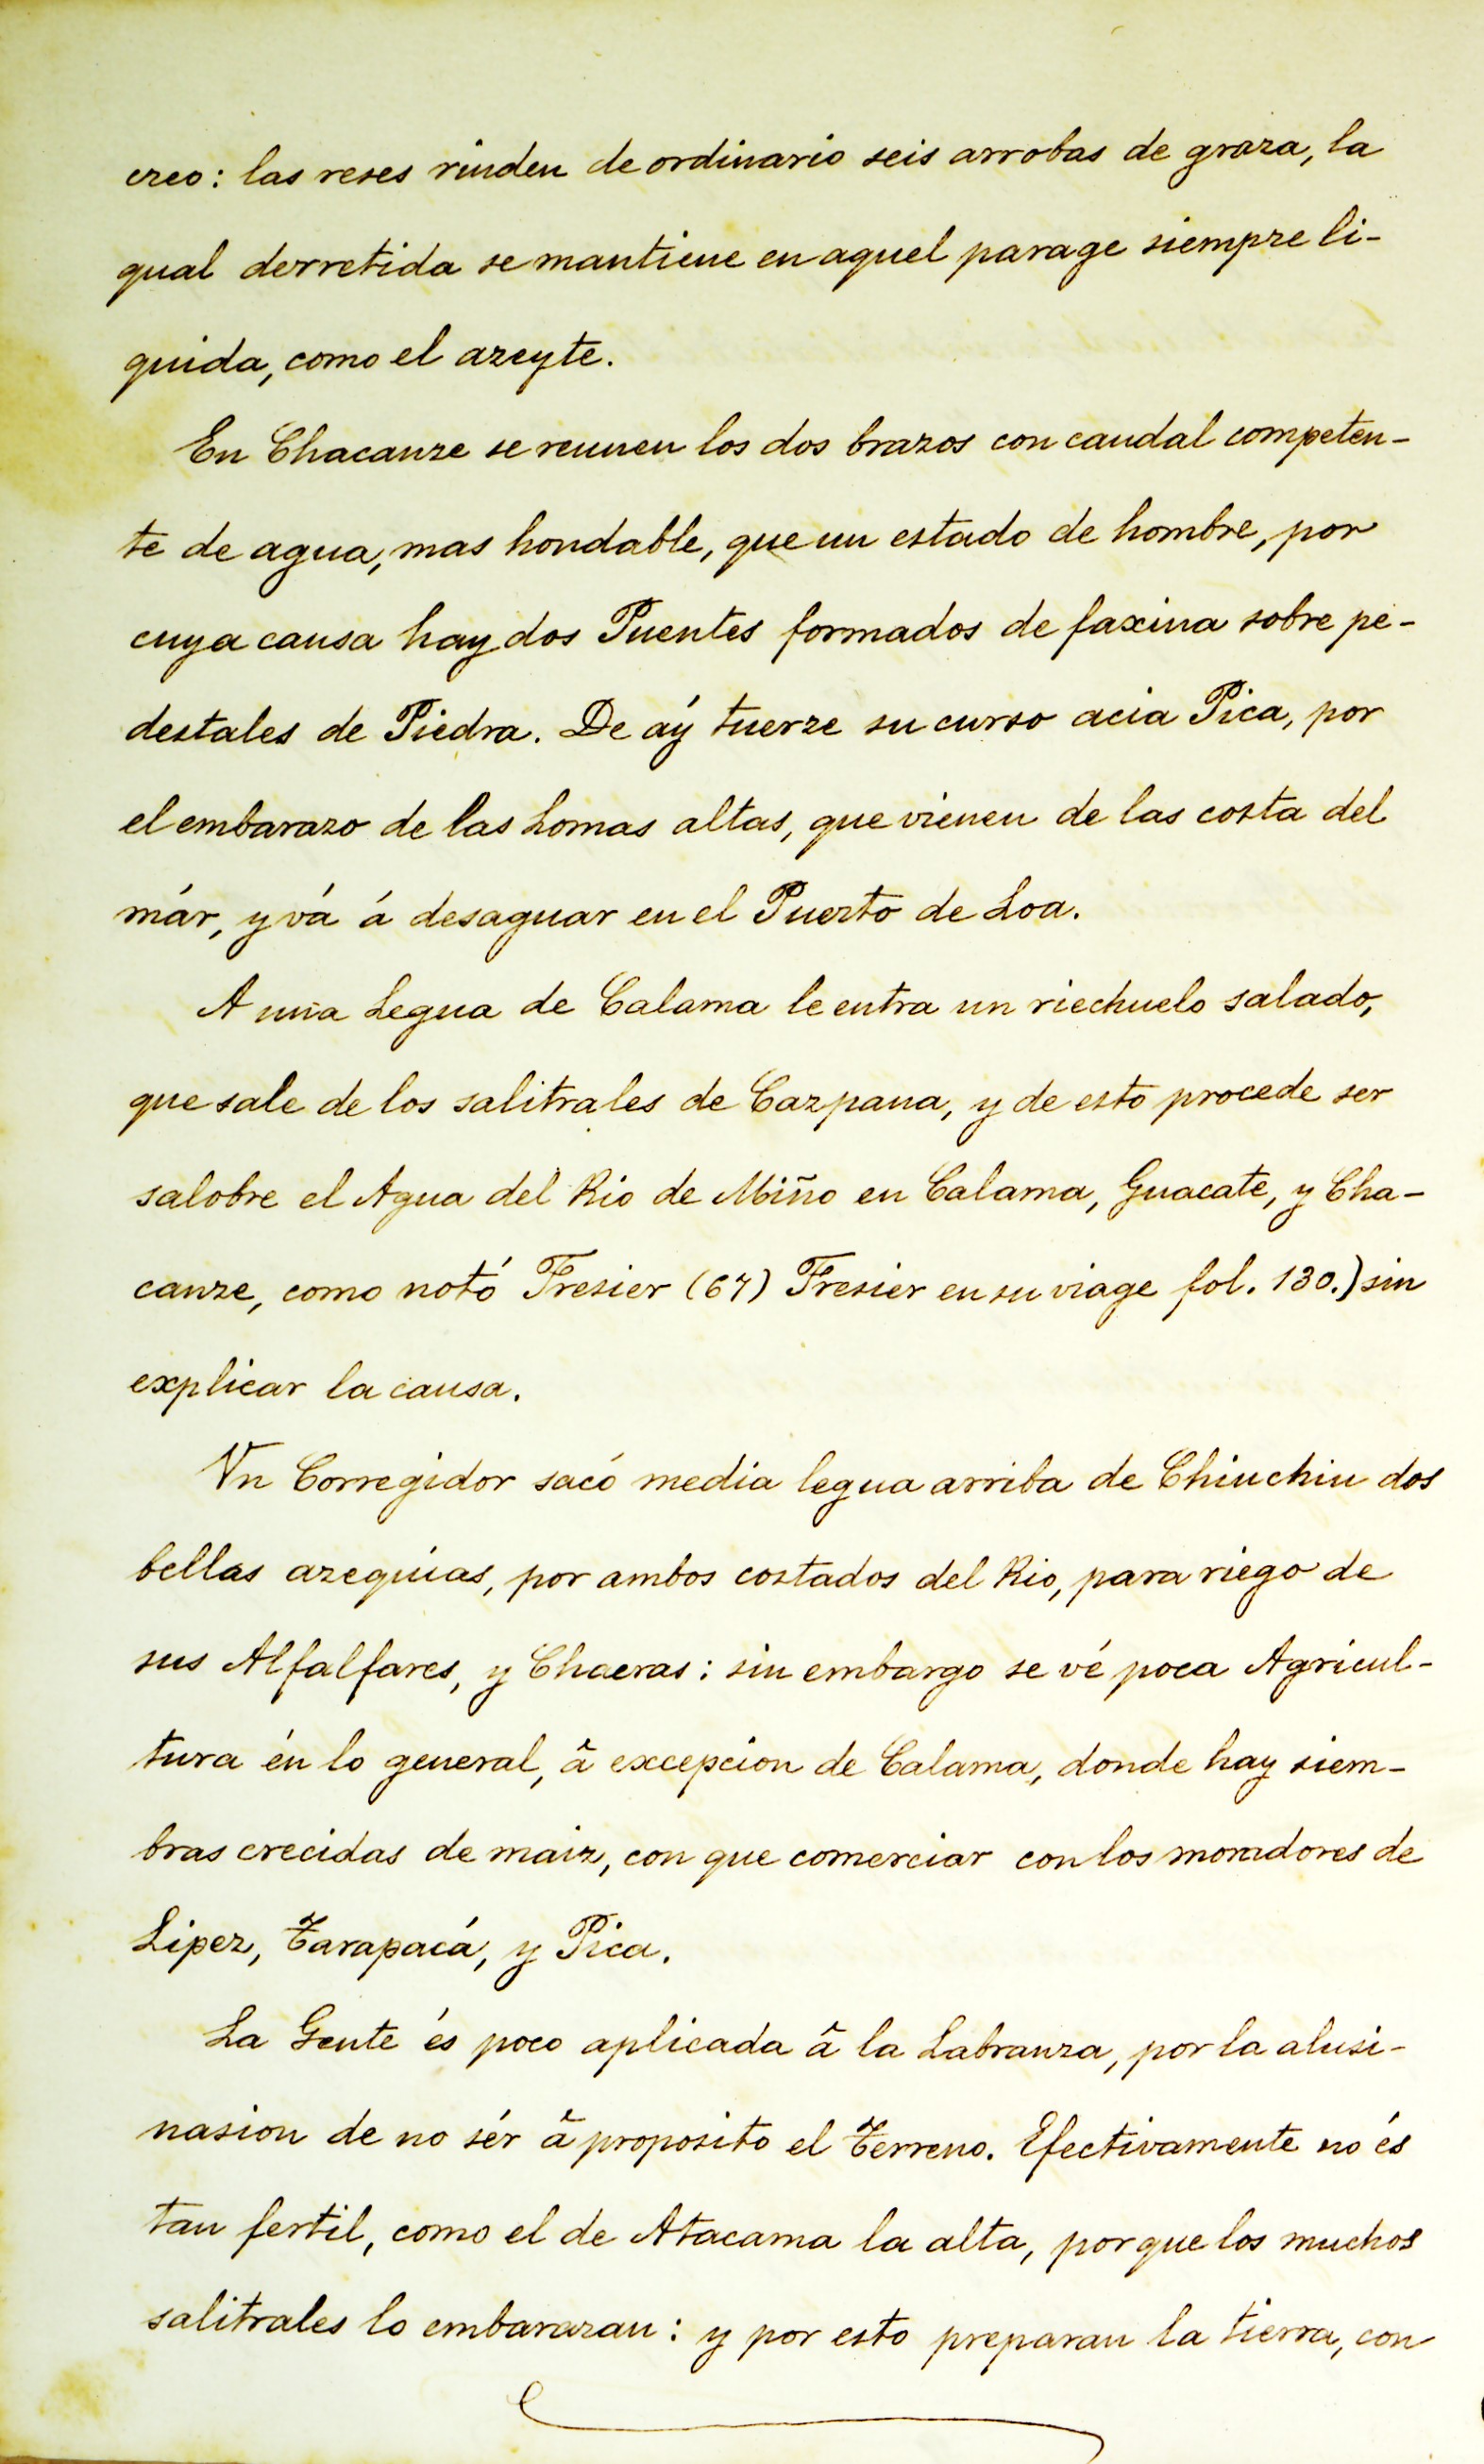 creo: las reses rinden de ordinario seis arrobas de graza, la
qual derretida se mantiene en aquel parage siempre li-
quida, como el azeyte.
En Chacanze se reunen los dos brazos con caudal competen-
te de agua, mas hondable, que un estado de hombre, por
cuya causa hay dos Puentes formados de faxina sobre pe-
destales de Piedra. De aý tuerze su curso acia Pica, por
el embarazo de las Lomas altas, que vienen de las costa del
már, y vá á desaguar en el Puerto de Loa.
A una Legua de Calama le entra un riechuelo salado,
que sale de los salitrales de Cazpana, y de esto procede ser
salobre el Agua del Rio de Miño en Calama, Guacate, y Cha-
canze, como notó Fresier (67) Fresier en su viage fol. 130.) sin
explicar la causa.
Vn Corregidor sacó media legua arriba de Chiuchiu dos
bellas azequias, por ambos costados del Rio, para riego de
sus Alfalfares, y Chacras: sin embargo se vé poca Agricul-
tura én lo general, â excepcion de Calama, donde hay siem-
bras crecidas de maiz, con que comerciar con los moradores de
Lipez, Tarapacá, y Pica.
La Gente és poco aplicada â la Labranza, por la alusi-
nasion de no sér â proposito el Terreno. Efectivamente no és
tan fertil, como el de Atacama la alta, porque los muchos
salitrales lo embarazan: y por esto preparan la tierra, con